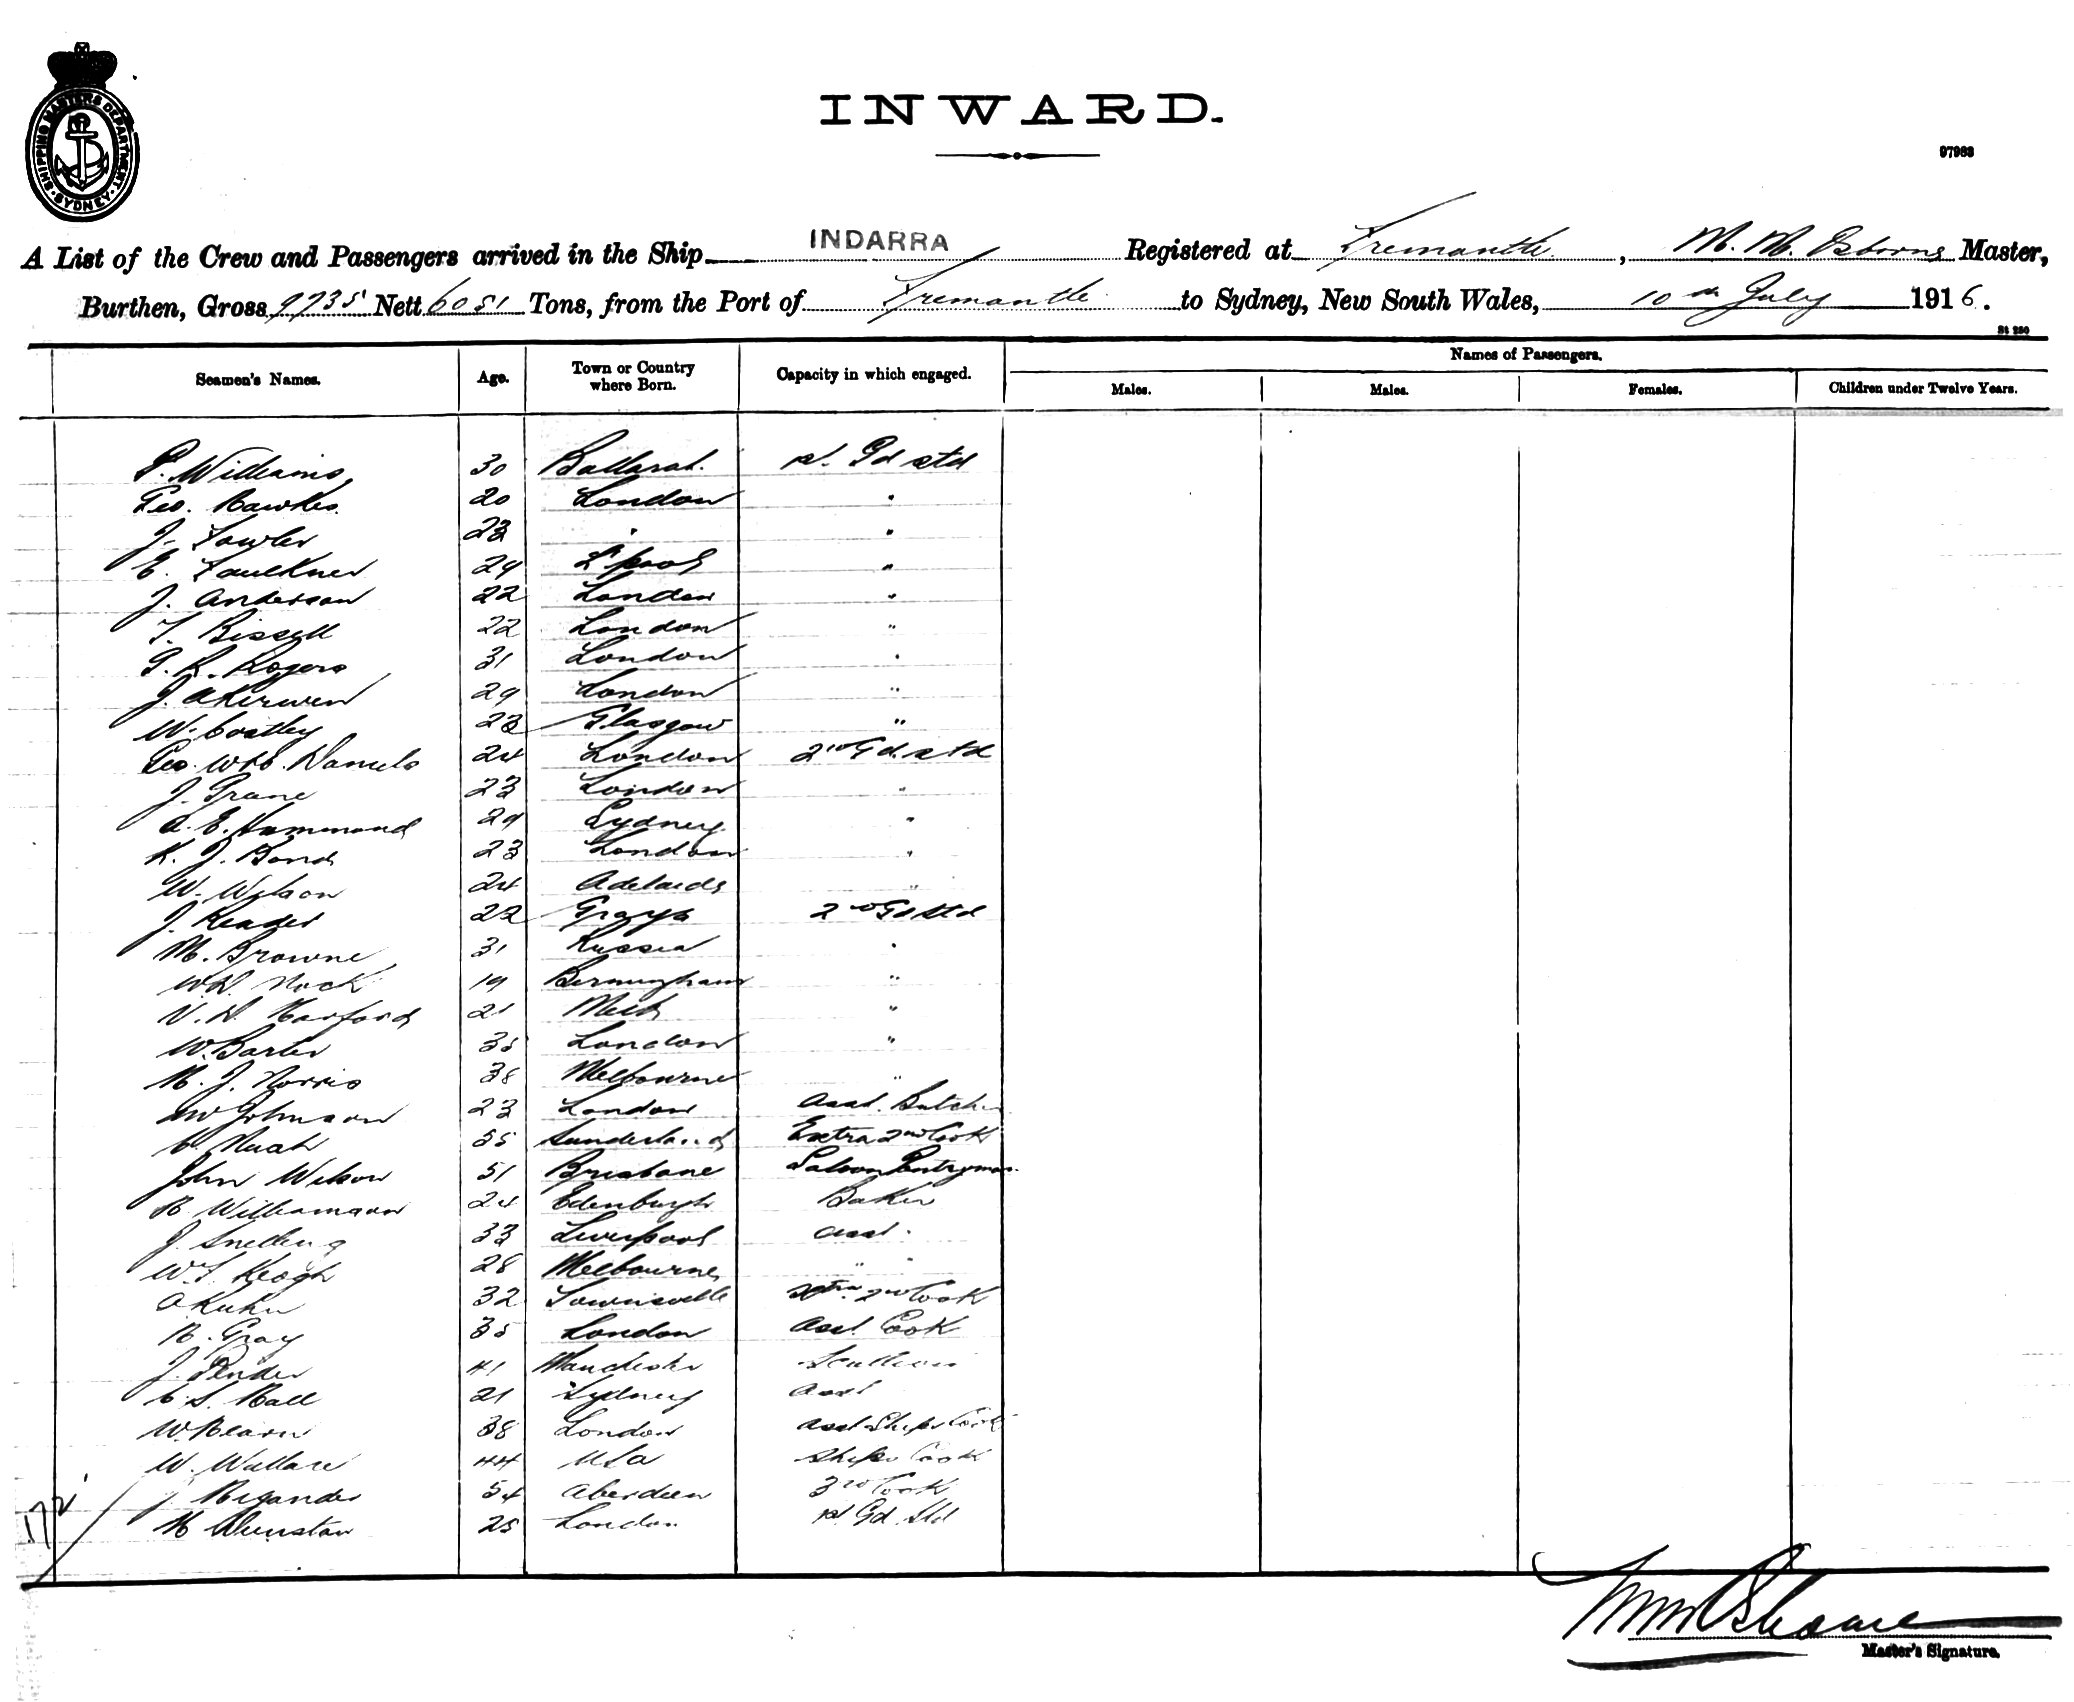 SHIPPING MASTERS DEPARTMENT. SYDNEY.
INWARD.
97983
A List of the Crew and Passengers arrived in the Ship INDARRA Registered at Fremantle, M. M. Osborne Master,
Burthen, Gross 9735 Nett 6051 Tons, from the Port of Fremantle to Sydney, New South Wales, 10th July 1916.
St 250
Seamen's Names. Age. Town or Country where Born. Capacity in which engaged. Names of Passengers.
Males. Males. Females. Children under Twelve Years.
P. Williams 30 Ballarat. 1st. Gd std
Geo. Hawkes 20 London "
J. Fowler 23 " "
E. Faulkner 24 L'pool "
J. Anderson 22 London "
T. Bissell 22 London "
G. R. Rogers 31 London "
J. Akerwen 29 London "
W. Costley 23 Glasgow "
Geo. Daniels 24 London 2nd Gd. std
J. 23 London "
A. E. Hammond 29 Sydney "
K. J. Bond 23 London "
W. Wilson 24 Adelaide "
J. Reader 22 Grays 2nd Gd std
M. Browne 31 Russia "
W.H. Nock 19 Birmingham "
V. H. Harford 21 Melb "
W. Barter 35 London "
H. J. Norris 38 Melbourne "
W Johnson 23 London Asst. Butcher
C. 55 Sunderland Extra 2nd Cook
John Wilson 51 Brisbane Saloon Pantryman.
H Williamson 24 Edenburgh Baker
J. Snelling 33 Liverpool Asst.
W. T. Keogh 28 Melbourne " "
A Kuhn 32 Townsville Xtra 2nd Cook
H. Gray 35 London Asst. Cook
J. Pender 41 Manchester Scullion
C. S. Hall 21 Sydney Asst
W. Hearn 38 London Asst Ships Cook
W. Wallace 44 USA Ships Cook
J. 54 Aberdeen 3rd Cook
H Dunstan 25 London 1st Gd. Std
172
M M Osborne
Master's Signature.